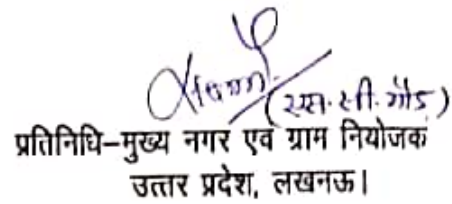 (एस.सी. गौड)
प्रतिनिधि–मुख्य नगर एवं ग्राम नियोजक
उत्तर प्रदेश, लखनऊ।